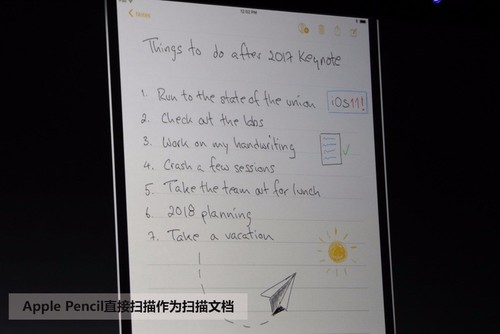 Notes
Things to do after 2017 Keynote
1. Run to the state of the union
iOS11!
2. Check out the labs
3. Work on my handwriting
4. Crash a few sessions
5. Take the team out for lunch
6. 2018 planning
7. Take a vacation
Apple Pencil直接扫描作为扫描文档